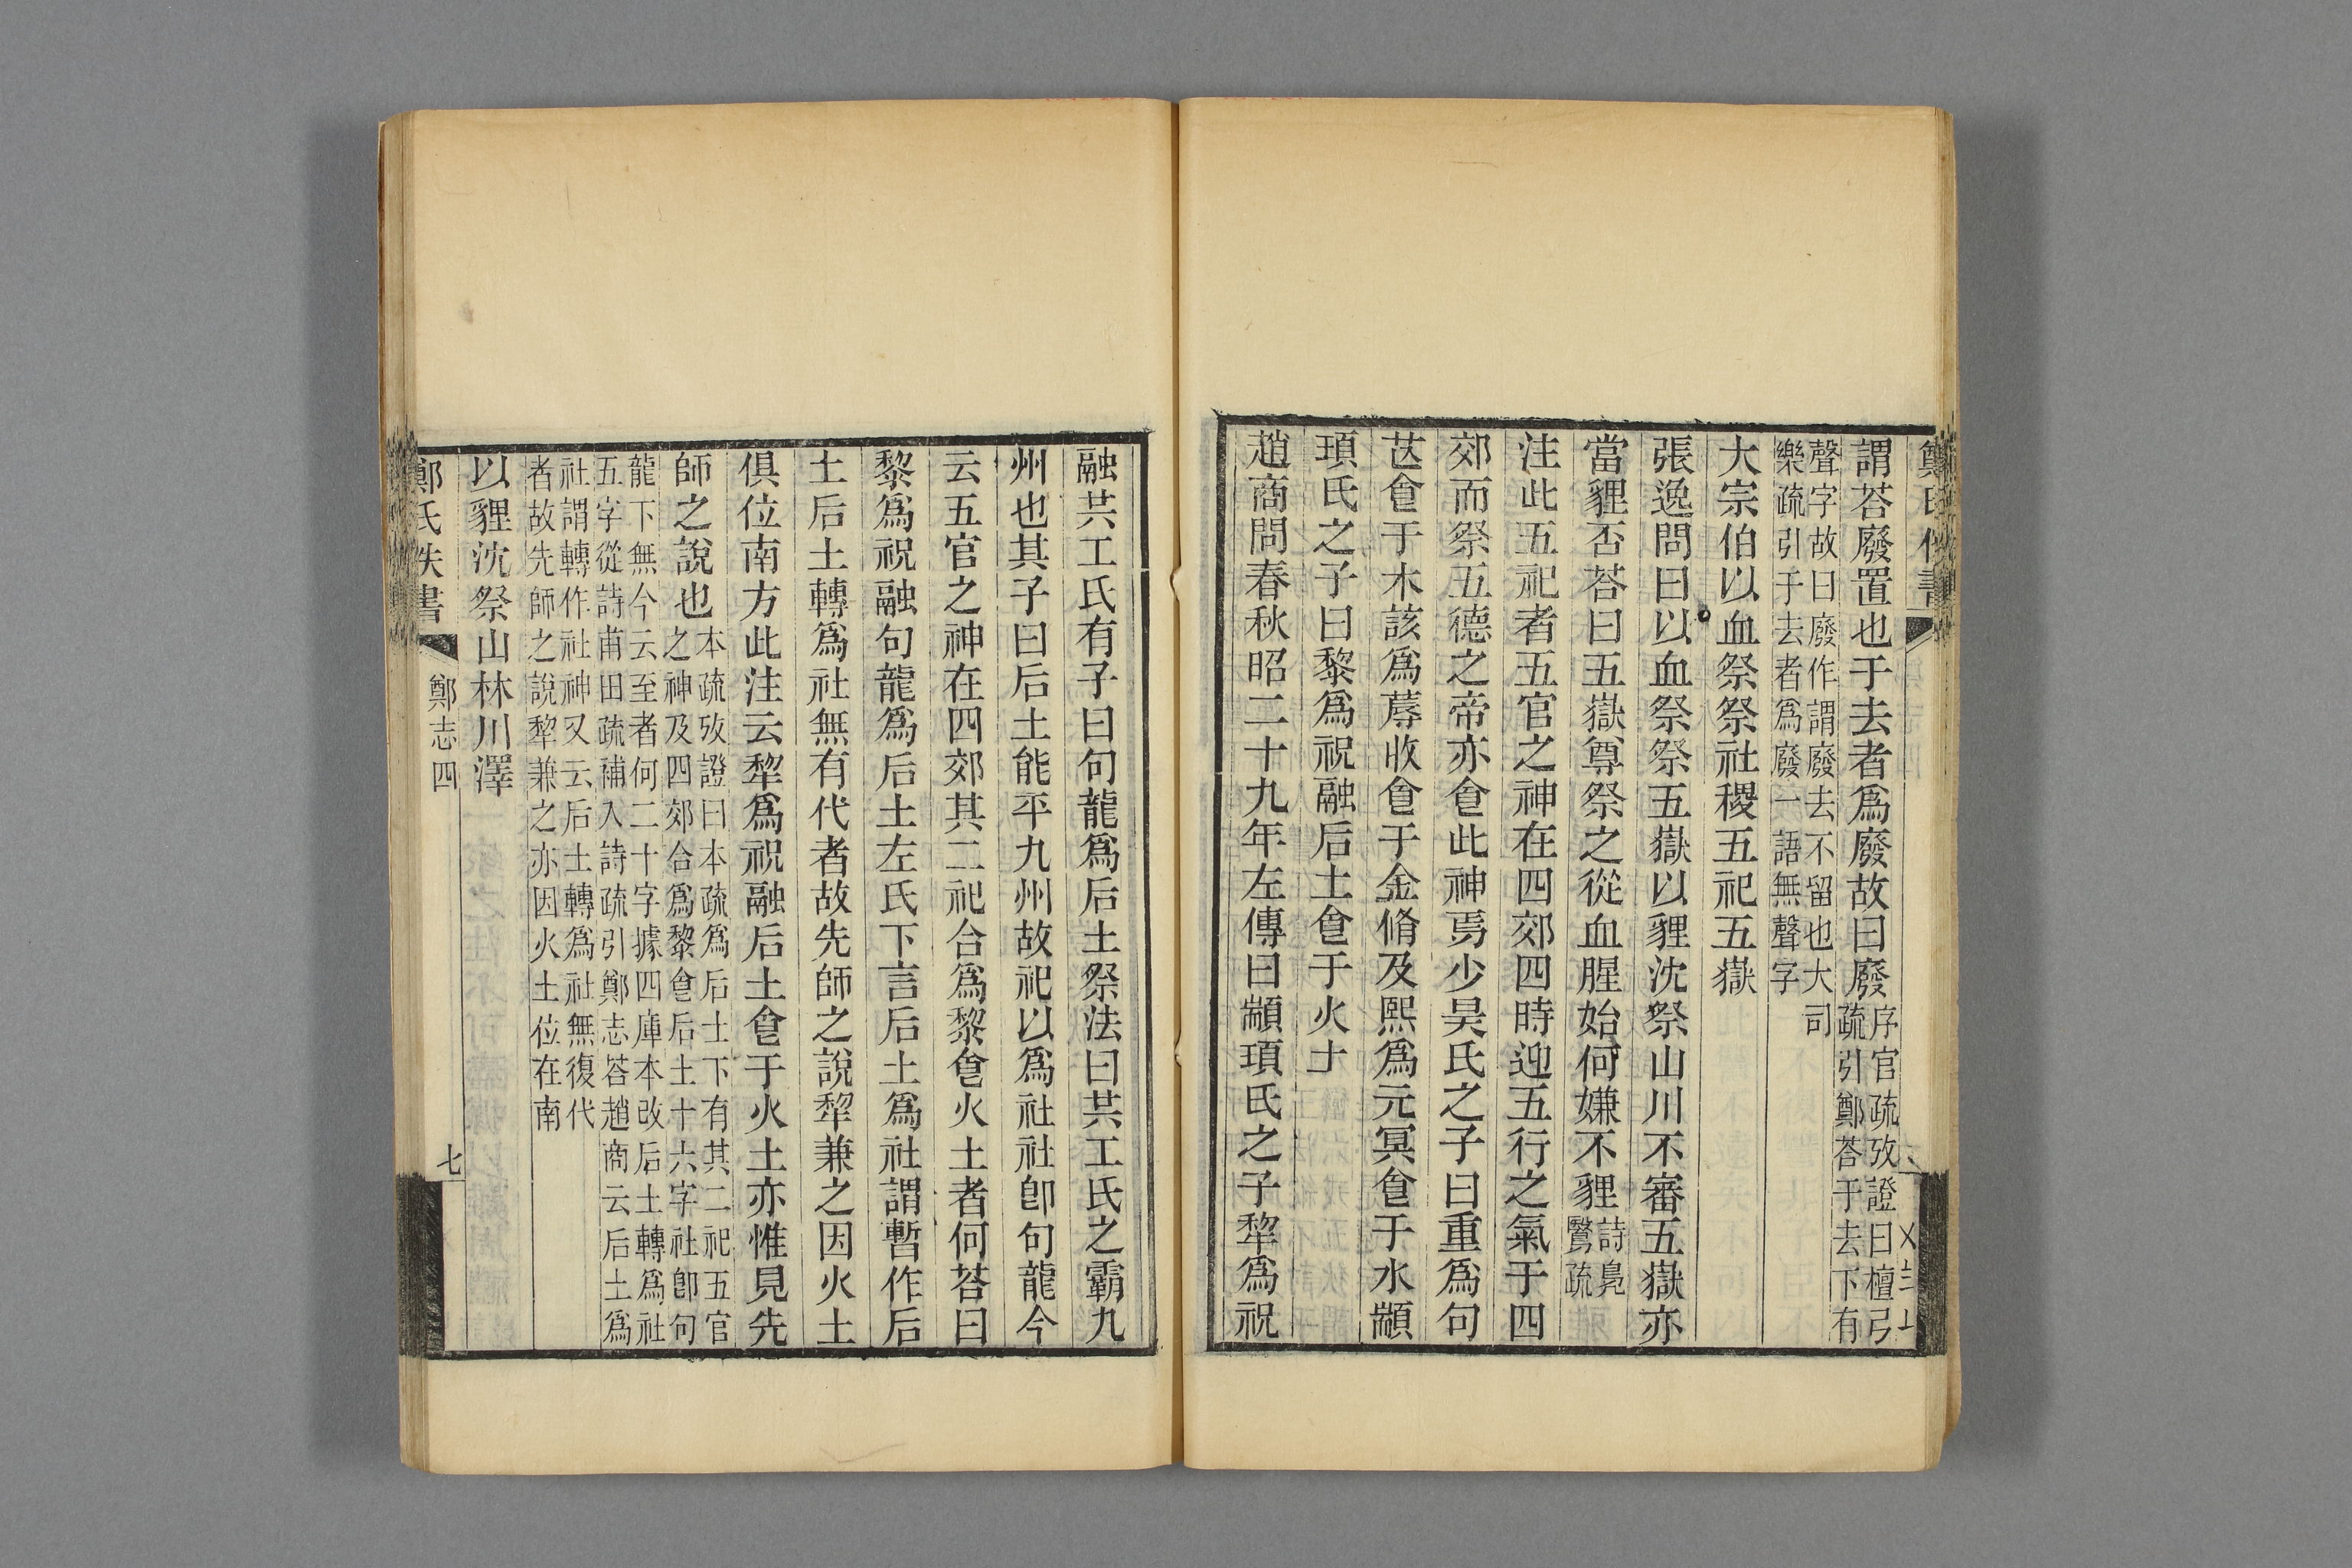 謂荅廢置也于去者爲廢故曰廢序官疏攷證曰檀弓
疏引鄭荅于去下有
聲字故曰廢作謂廢去不留也大司
樂疏引于去者爲廢一語無聲字
大宗伯以血祭祭社稷五祀五嶽
張逸問曰以血祭祭五嶽以貍沈祭山川不審五嶽亦
當貍否荅曰五嶽尊祭之從血腥始何嫌不貍詩鳧
鷖疏
注此五祀者五官之神在四郊四時迎五行之氣于四
郊而祭五德之帝亦食此神焉少昊氏之子曰重爲句
芒食于木該爲蓐收食于金脩及熙爲元冥食于水顓
頊氏之子曰黎爲祝融后土食于火土
趙商問春秋昭二十九年左傳曰顓頊氏之子犂爲祝
融共工氏有子曰句龍爲后土祭法曰共工氏之霸九
州也其子曰后土能平九州故祀以爲社社卽句龍今
云五官之神在四郊其二祀合爲黎食火土者何荅曰
黎爲祝融句龍爲后土左氏下言后土爲社謂暫作后
土后土轉爲社無有代者故先師之說犂兼之因火土
俱位南方此注云犂爲祝融后土食于火土亦惟見先
師之說也本疏攷證曰本疏爲后土下有其二祀五官
之神及四郊合爲黎食后土十六字社卽句
龍下無今云至者何二十字據四庫本改后土轉爲社
五字從詩甫田疏補入詩疏引鄭志荅趙商云后土爲
社謂轉作社神又云后土轉爲社無復代
者故先師之說犂兼之亦因火土位在南
以貍沈祭山林川澤
鄭氏佚書
鄭志四
七